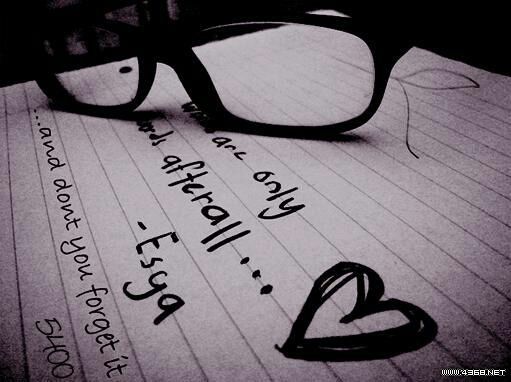 are only
afterall...
-Esya
...and dont you forget it
5400
www.4368.NET